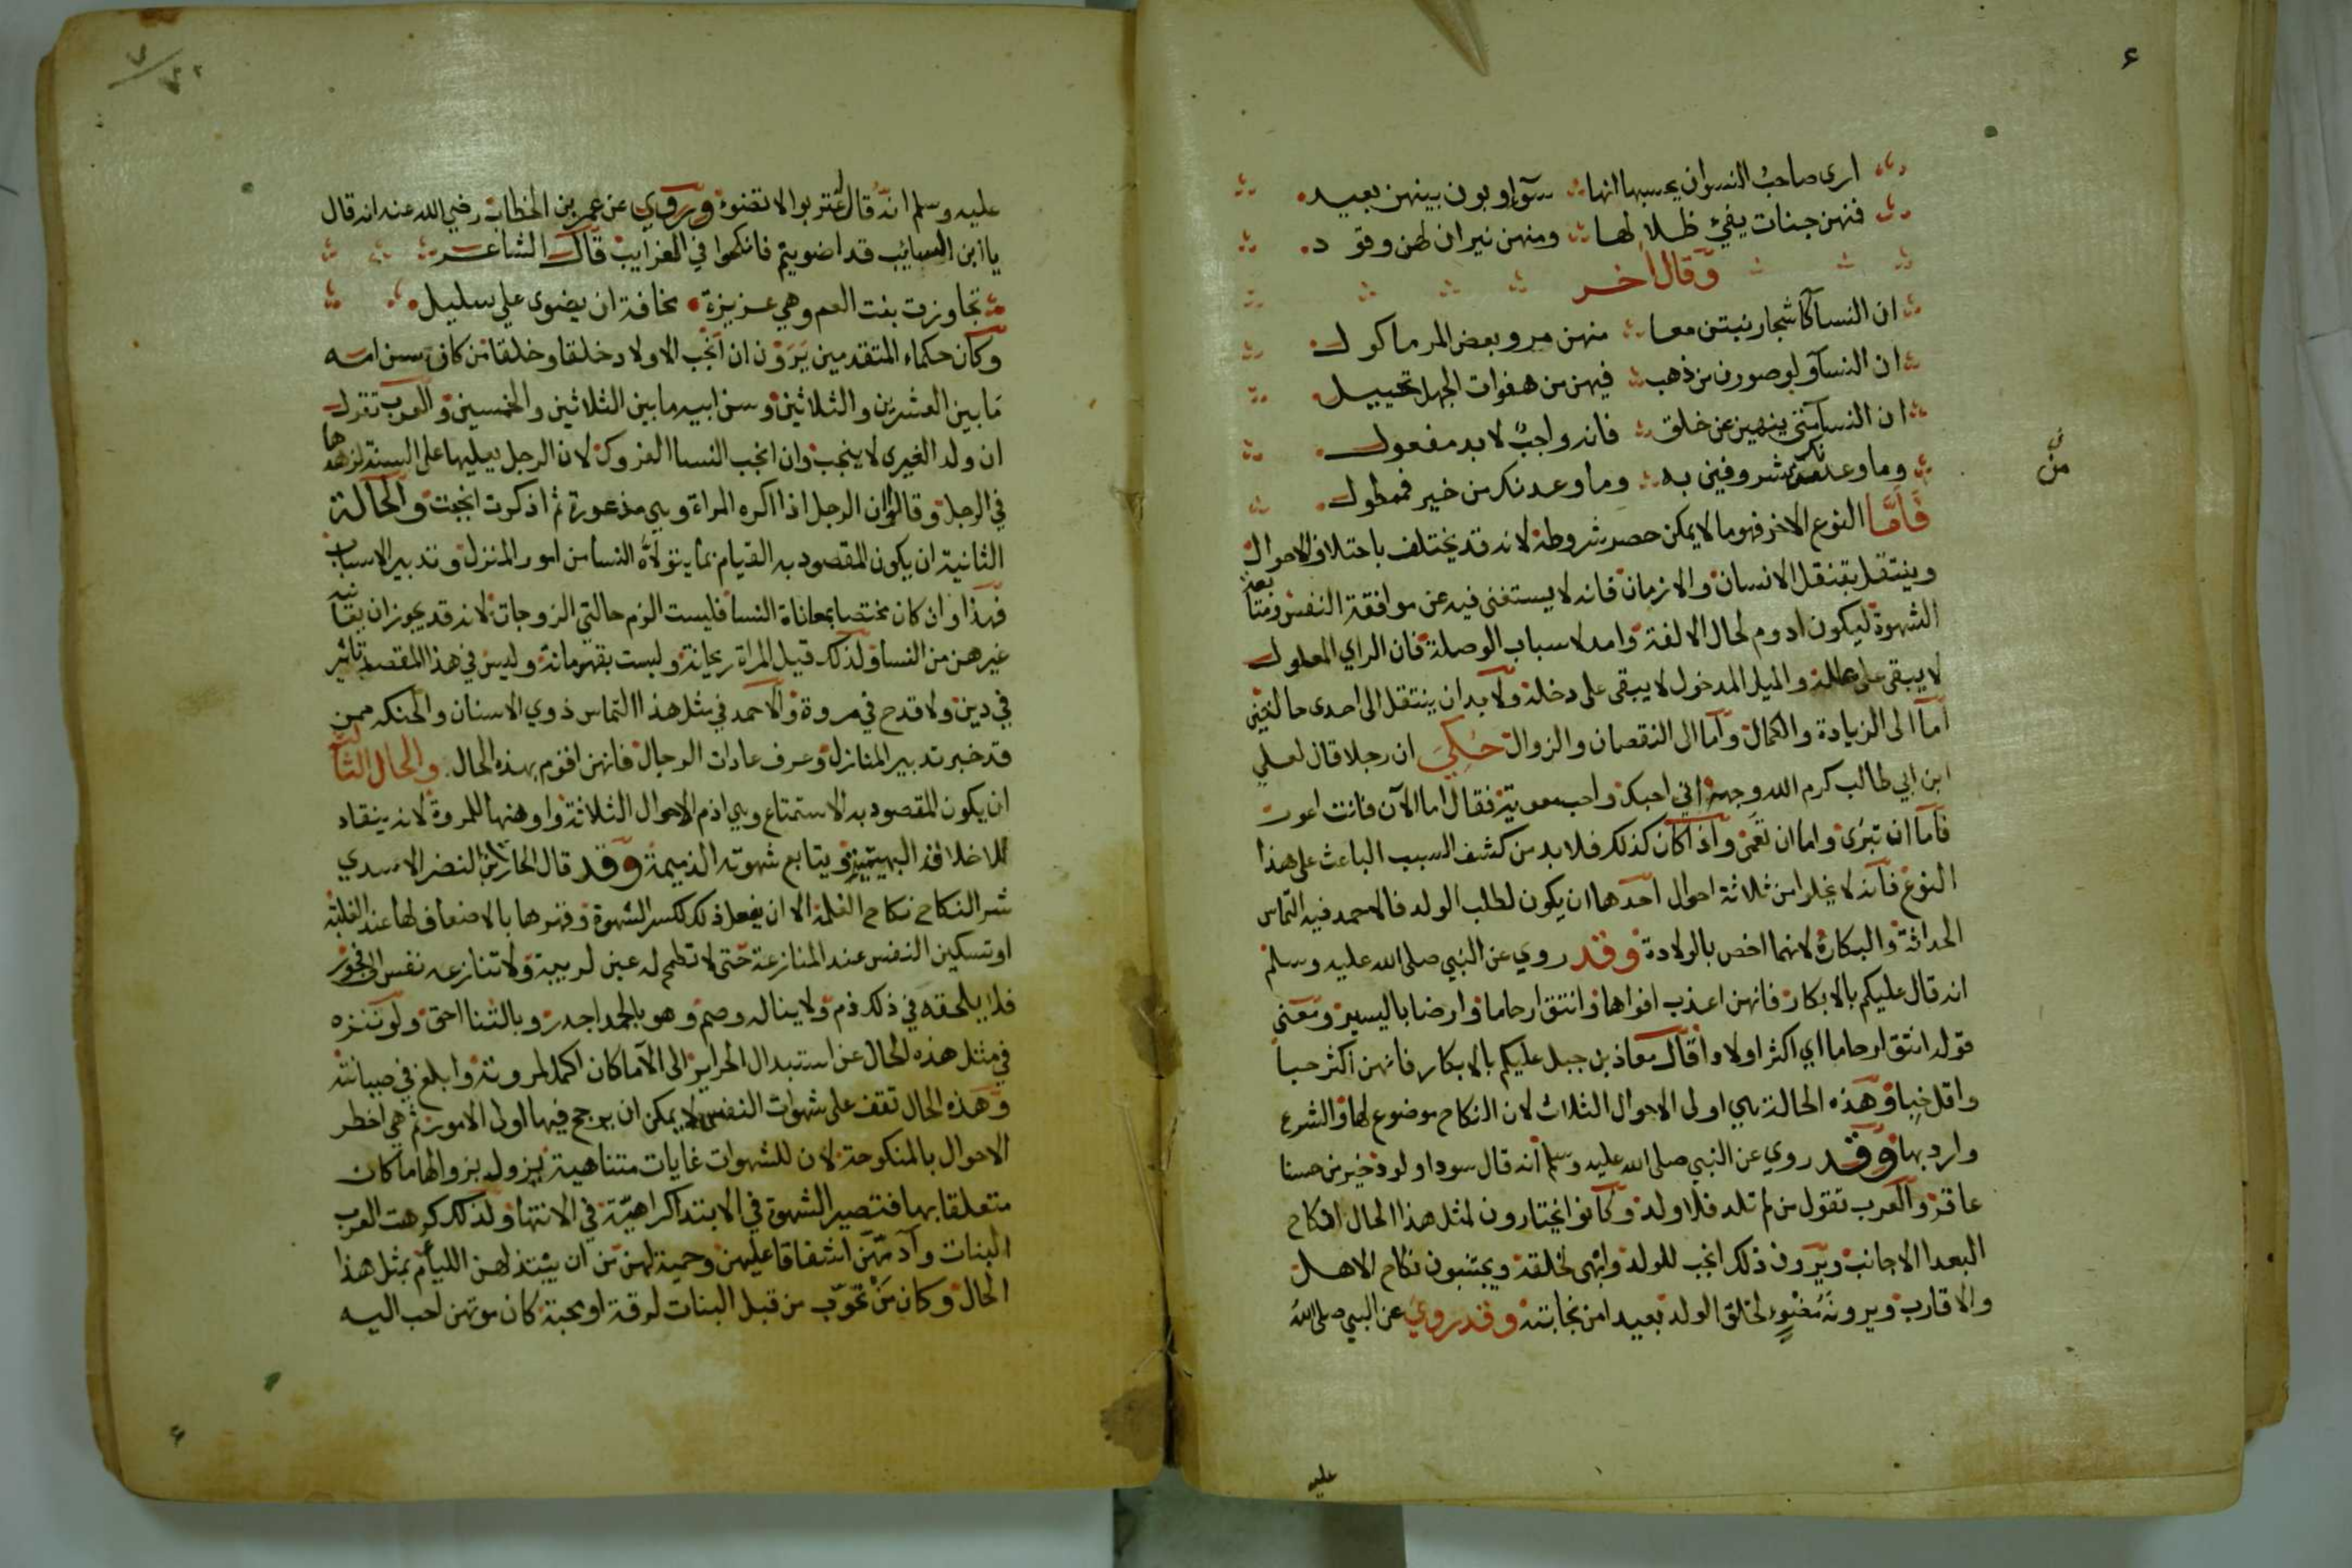 ٤
ارى صاحب النسوان يحسبها انها سوآ وبون بينهن بعيد
فنهن جنات يفئ ظلالها ومنهن نيران لهن وقود
وقال اخر
ان النسآ كاشجار نبتن معا منهن مر وبعض المر ماكول
ان النسآ ولو صورن من ذهب فيهن من هفوات الجهل تخييل
ان النسآ متى ينهين عن خلق فانه واجب لا بد مفعول
وما وعدنك من شر وفين به وما وعدنك من خير فممطول
من
فَأمَّا النوع الاخر فهو ما لا يمكن حصر شروطه لانه قد يختلف باختلاف الاحوال
وينتقل بتنقل الانسان والازمان فانه لا يستغنى فيه عن موافقة النفس ومتابعة
الشهوة ليكون ادوم لحال الالفة وامد لاسباب الوصلة فان الراي المعلول
لا يبقى على علله والميل المدخول لا يبقى على دخله ولا بد ان ينتقل الى احدى حالتين
اما الى الزيادة والكمال واما الى النقصان والزوال حُكِيَ ان رجلا قال لعلي
ابن ابي طالب كرم الله وجهه اني احبك واحب معوية فقال اما الآن فانت اعور
فاما ان تبرى واما ان تعمى واذا كان كذلك فلا بد من كشف السبب الباعث على هذا
النوع فانه لا يخلوا من ثلاثة احوال احدها ان يكون لطلب الولد فالاحمد فيه التماس
الحداثة والبكارة لانهما اخص بالولادة وقد روي عن النبي صلى الله عليه وسلم
انه قال عليكم بالابكار فانهن اعذب افواها وانتق ارحاما وارضا باليسير ومعنى
قوله انتق ارحاما اي اكثر اولادا قال معاذ بن جبل عليكم بالابكار فانهن اكثر حبا
واقل خبا وهذه الحالة هي اولى الاحوال الثلاث لان النكاح موضوع لها والشرع
وارد بها وقد روي عن النبي صلى الله عليه وسلم انه قال سودا ولود خير من حسنا
عاقر والعرب تقول من لم تلد فلا ولد وكانوا يختارون لمثل هذا الحال انكاح
البعدا الاجانب ويرون ذلك انجب للولد وابهى لخلقة ويجتنبون نكاح الاهل
والاقارب ويرونه مضنوء لخلق الولد بعيدا من نجابته وقد روي عن النبي صلى الله
عليه
عليه وسلم انه قال اغتربوا لا تضنوء وروي عن عمر بن الخطاب رضي الله عنه انه قال
يا ابن السايب قد اضويتم فانكحوا في الغرايب قال الشاعر
تجاوزت بنت العم وهي عزيزة مخافة ان يضوى علي سليل
وكان حكماء المتقدمين يَرَوْن ان انجب الاولاد خلقا وخلقا من كان سن امه
مَا بين العشرين والثلاثين وسن ابيه ما بين الثلاثين والخمسين والعرب تقول
ان ولد الغيرى لا ينجب وان انجب النسا الفروك لان الرجل يغلبها على السنة لزهدها
في الرجل وقالوا ان الرجل اذا اكره المراة وهي مذعورة ثم اذكرت انجبت والحالة
الثانية ان يكون المقصود به القيام بما يتولاه النسا من امور المنزل وتدبير الاسباب
فهذا وان كان مختصا بمعاناة النسا فليست الزم حالتي الزوجات لانه قد يجوز ان يعانيه
غيرهن من النسا ولذلك قيل المراة ريحانة وليست بقهرمانة وليس في هذا المقصد تاثير
في دين ولا قدح في مروة والاحمد في مثل هذا التماس ذوي الاسنان والحنكه ممن
قد خبر تدبير المنازل وعرف عادات الرجال فانهن اقوم بهذه الحال والحال الثالث
ان يكون المقصود به الاستمتاع وهي اذم الاحوال الثلاثة واوهنها للمروة لانه ينقاد
للاخلاقه البهيمية ويتابع شهوته الذميمة وقد قال الحارث بن النضر الاسدي
شر النكاح نكاح الغلمة الا ان يفعل ذلك لكسر الشهوة وقهرها بالاضعاف لها عند الغلبة
او تسكين النفس عند المنازعة حتى لا تطمح له عين لريبة ولا تنازعه نفس الى فجور
فلا يلحقه في ذلك ذم ولا يناله وصم وهو بالحمد اجدر وبالثنا احق ولو تنزه
في مثل هذه الحال عن استبدال الحراير الى الآما كان اكمل لمروته وابلغ في صيانته
وهذه الحال تقف على شهوات النفس لا يمكن ان يرجح فيها اولى الامور ثم هي اخطر
الاحوال بالمنكوحة لان للشهوات غايات متناهية يزول بزوالها ما كان
متعلقا بها فتصير الشهوة في الابتدا كراهية في الانتها ولذلك كرهت العرب
البنات وآدتهن اشفاقا عليهن وحمية لهن من ان يبتذلهن الليام بمثل هذا
الحال وكان من تحوب من قبل البنات لرقة او محبة كان موتهن احب اليه